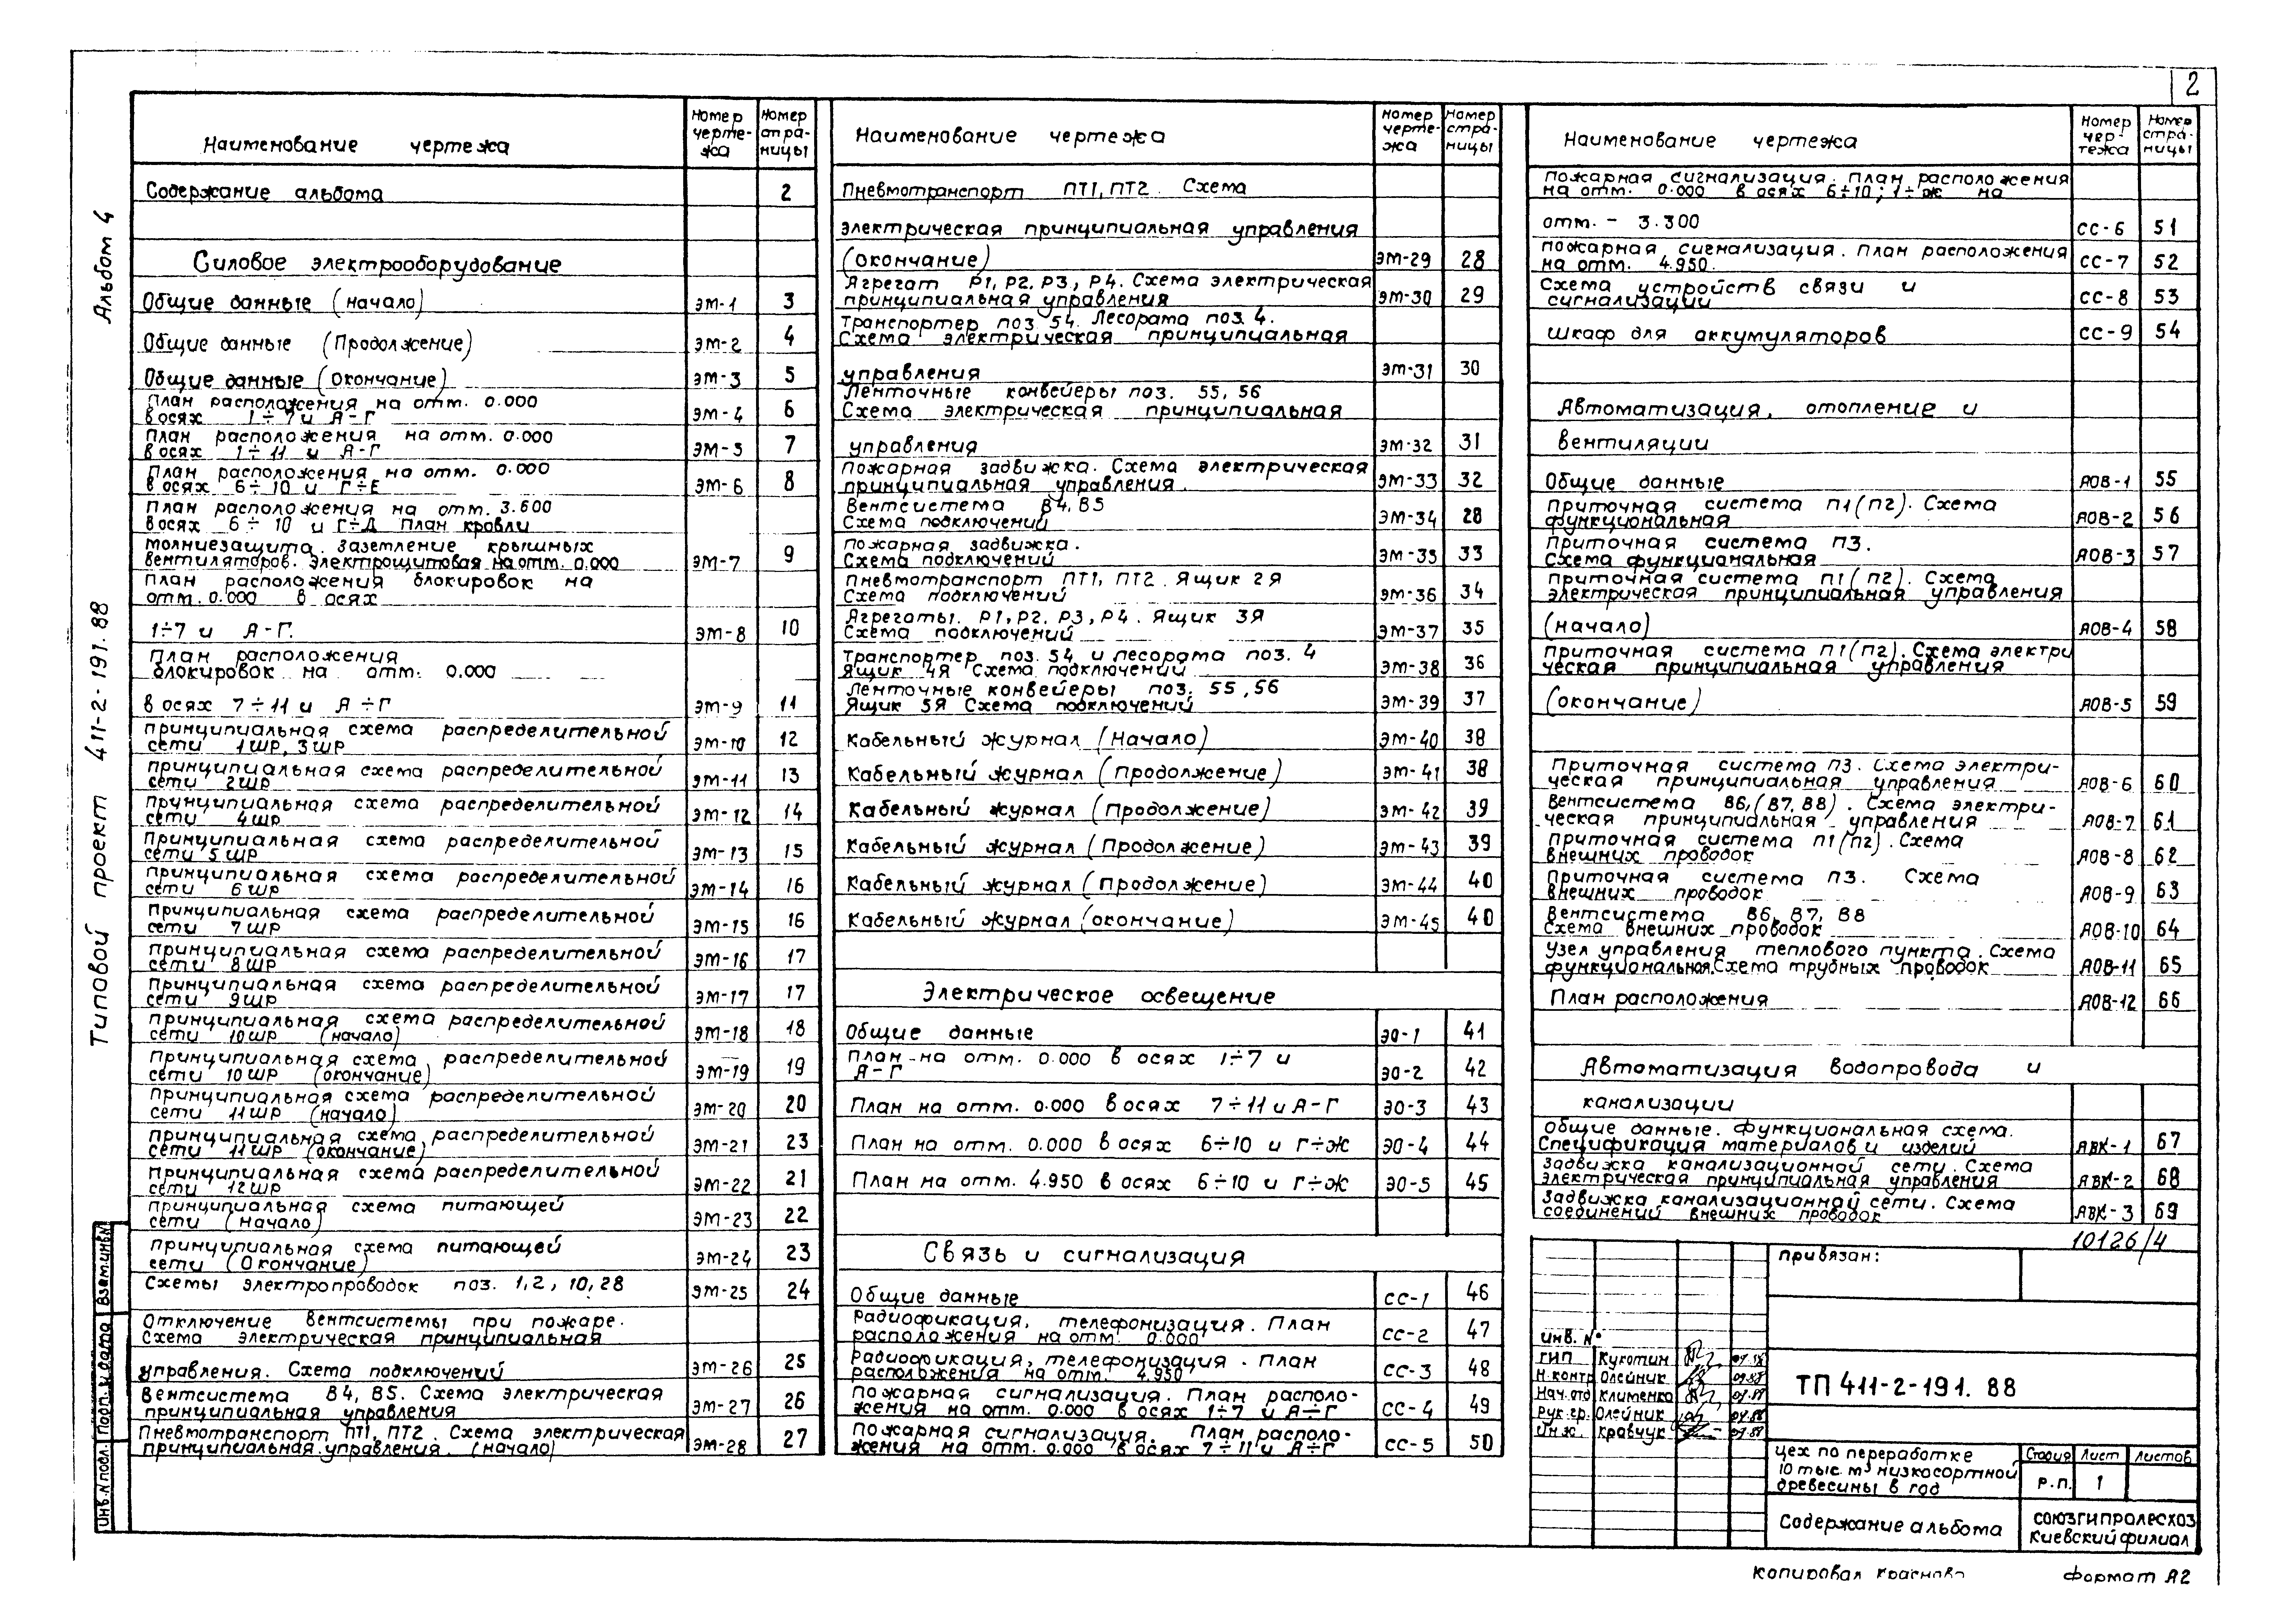 2
Альбом 4
Типовой проект 411-2-191.88
Наименование чертежа
Номер чертежа
Номер страницы
Содержание альбома 2
Силовое электрооборудование
Общие данные (начало) ЭМ-1 3
Общие данные (Продолжение) ЭМ-2 4
Общие данные (окончание) ЭМ-3 5
План расположения на отм. 0.000
в осях 1÷7 и А-Г ЭМ-4 6
План расположения на отм. 0.000
в осях 1÷11 и А-Г ЭМ-5 7
План расположения на отм. 0.000
в осях 6÷10 и Г÷Е ЭМ-6 8
План расположения на отм. 3.600
в осях 6÷10 и Г÷Д План кровли
молниезащита. заземление крышных
вентиляторов. Электрощитовая на отм. 0.000 ЭМ-7 9
План расположения блокировок на
отм. 0.000 в осях
1÷7 и А-Г. ЭМ-8 10
План расположения
блокировок на отм. 0.000
в осях 7÷11 и А÷Г ЭМ-9 11
принципиальная схема распределительной
сети 1ШР, 3ШР ЭМ-10 12
принципиальная схема распределительной
сети 2ШР ЭМ-11 13
принципиальная схема распределительной
сети 4ШР ЭМ-12 14
Принципиальная схема распределительной
сети 5ШР ЭМ-13 15
принципиальная схема распределительной
сети 6ШР ЭМ-14 16
принципиальная схема распределительной
сети 7ШР ЭМ-15 16
принципиальная схема распределительной
сети 8ШР ЭМ-16 17
принципиальная схема распределительной
сети 9ШР ЭМ-17 17
принципиальная схема распределительной
сети 10ШР (начало) ЭМ-18 18
принципиальная схема распределительной
сети 10ШР (окончание) ЭМ-19 19
принципиальная схема распределительной
сети 11ШР (начало) ЭМ-20 20
принципиальная схема распределительной
сети 11ШР (окончание) ЭМ-21 23
принципиальная схема распределительной
сети 12ШР ЭМ-22 21
принципиальная схема питающей
сети (начало) ЭМ-23 22
принципиальная схема питающей
сети (Окончание) ЭМ-24 23
Схемы электропроводок поз. 1,2, 10,28 ЭМ-25 24
Отключение вентсистемы при пожаре.
Схема электрическая принципиальная
управления. Схема подключений ЭМ-26 25
Вентсистема В4, В5. Схема электрическая
принципиальная управления ЭМ-27 26
Пневмотранспорт ПТ1, ПТ2. Схема электрическая
принципиальная управления. (начало) ЭМ-28 27
Наименование чертежа
Номер чертежа
Номер страницы
Пневмотранспорт ПТ1, ПТ2. Схема
электрическая принципиальная управления
(окончание) ЭМ-29 28
Агрегат Р1, Р2, Р3, Р4. Схема электрическая
принципиальная управления ЭМ-30 29
Транспортер поз. 54. Лесорама поз. 4.
Схема электрическая принципиальная
управления ЭМ-31 30
Ленточные конвейеры поз. 55, 56
Схема электрическая принципиальная
управления ЭМ-32 31
Пожарная задвижка. Схема электрическая
принципиальная управления. ЭМ-33 32
Вентсистема В4, В5
Схема подключений ЭМ-34 28
Пожарная задвижка.
Схема подключений ЭМ-35 33
Пневмотранспорт ПТ1, ПТ2. Ящик 2Я
Схема подключений ЭМ-36 34
Агрегаты. Р1, Р2, Р3, Р4. Ящик 3Я
Схема подключений ЭМ-37 35
Транспортер поз. 54 и лесорама поз. 4
Ящик 4Я Схема подключений ЭМ-38 36
Ленточные конвейеры поз. 55, 56
Ящик 5Я Схема подключений ЭМ-39 37
Кабельный журнал (Начало) ЭМ-40 38
Кабельный журнал (Продолжение) ЭМ-41 38
Кабельный журнал (Продолжение) ЭМ-42 39
Кабельный журнал (Продолжение) ЭМ-43 39
Кабельный журнал (Продолжение) ЭМ-44 40
Кабельный журнал (окончание) ЭМ-45 40
Электрическое освещение
Общие данные ЭО-1 41
План на отм. 0.000 в осях 1÷7 и
А-Г ЭО-2 42
План на отм. 0.000 в осях 7÷11 и А-Г ЭО-3 43
План на отм. 0.000 в осях 6÷10 и Г÷Ж ЭО-4 44
План на отм. 4.950 в осях 6÷10 и Г÷Ж ЭО-5 45
Связь и сигнализация
Общие данные СС-1 46
Радиофикация, телефонизация. План
расположения на отм. 0.000 СС-2 47
Радиофикация, телефонизация. План
расположения на отм. 4.950 СС-3 48
Пожарная сигнализация. План располо-
жения на отм. 0.000 в осях 1÷7 и А÷Г СС-4 49
Пожарная сигнализация. План располо-
жения на отм. 0.000 в осях 7÷11 и А÷Г СС-5 50
Наименование чертежа
Номер чертежа
Номер страницы
пожарная сигнализация. План расположения
на отм. 0.000 в осях 6÷10; 1÷Ж на
отм. - 3.300 СС-6 51
пожарная сигнализация. План расположения
на отм. 4.950. СС-7 52
Схема устройств связи и
сигнализации СС-8 53
шкаф для аккумуляторов СС-9 54
Автоматизация, отопление и
вентиляции
Общие данные АОВ-1 55
Приточная система П1(П2). Схема
функциональная АОВ-2 56
Приточная система П3.
Схема функциональная АОВ-3 57
Приточная система П1(П2). Схема
электрическая принципиальная управления
(начало) АОВ-4 58
приточная система П1(П2). Схема электри
ческая принципиальная управления
(окончание) АОВ-5 59
Приточная система П3. Схема электри-
ческая принципиальная управления АОВ-6 60
Вентсистема В6, (В7, В8). Схема электри-
ческая принципиальная управления АОВ-7 61
Приточная система П1(П2). Схема
внешних проводок АОВ-8 62
Приточная система П3. Схема
внешних проводок АОВ-9 63
Вентсистема В6, В7, В8
Схема внешних проводок АОВ-10 64
Узел управления теплового пункта. Схема
функциональная. Схема трубных проводок АОВ-11 65
План расположения АОВ-12 66
Автоматизация водопровода и
канализации
Общие данные. Функциональная схема.
Спецификация материалов и изделий АВК-1 67
Задвижка канализационной сети. Схема
электрическая принципиальная управления АВК-2 68
Задвижка канализационной сети. Схема
соединений внешних проводок АВК-3 69
10126/4
привязан:
инв. №
ГИП Кукотин
Н.контр Олейник
Нач.отд Клименко
Рук.гр. Олейник
Инж. Кравчук
ТП 411-2-191.88
цех по переработке
10 тыс. м³ низкосортной
древесины в год
Стадия Лист Листов
Р.П. 1
Содержание альбома
СОЮЗГИПРОЛЕСХОЗ
Киевский филиал
Инв.№ подл. Подп. и дата Взам.инв.№
Копировал
Формат А2